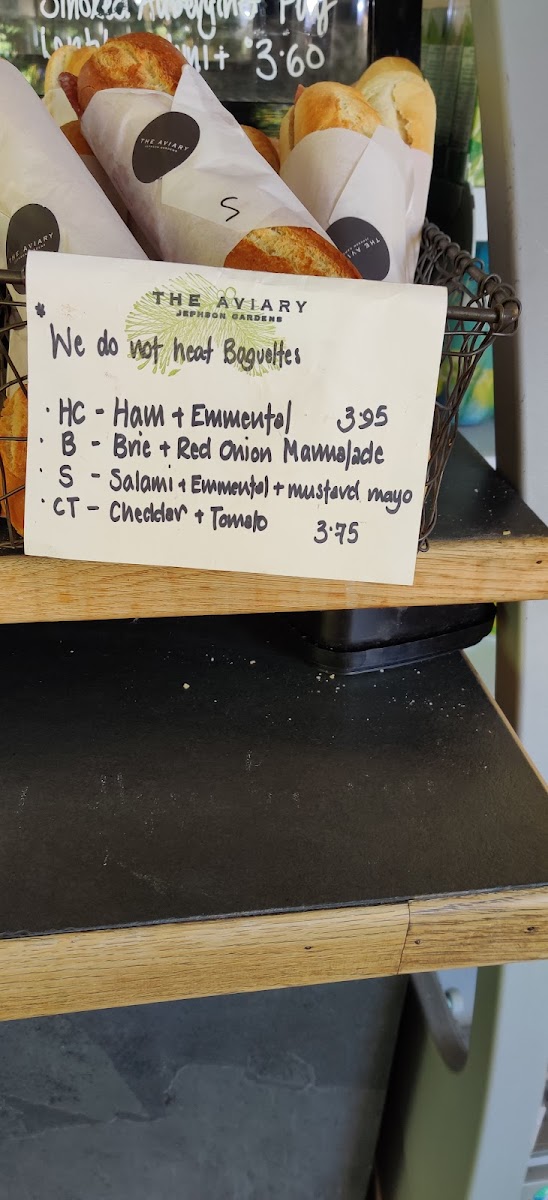 Smoked
3.60
THE AVIARY
S
THE AVIARY
THE AVIARY
THE AVIARY
JEPHSON GARDENS
* We do not heat Baguettes
· HC - Ham + Emmental 3.95
· B - Brie + Red Onion Marmalade
· S - Salami + Emmental + mustard mayo
· CT - Cheddar + Tomato 3.75